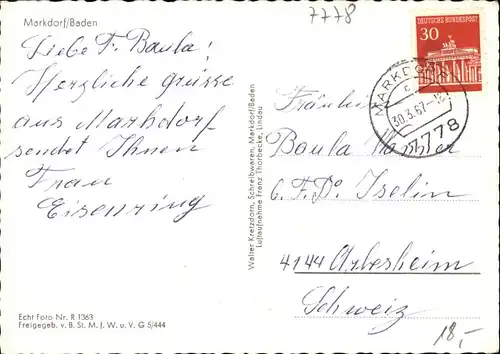 Markdorf/Baden
7778
DEUTSCHE BUNDESPOST
30
MARKDORF
30.3.67
7778
Liebe F. Baula!
Herzliche grüsse
aus Markdorf
sendet Ihnen
Frau
Eisenring
Fräulein
Baula
b. F. Do Iselin
4144 Arlesheim
Schweiz
Walter Kretzdorn, Schreibwaren, Markdorf/Baden
Luftaufnahme Franz Thorbecke, Lindau
Echt Foto Nr. R 1363
Freigegeb. v. B. St. M. f. W. u. V. G 5/444
18,-